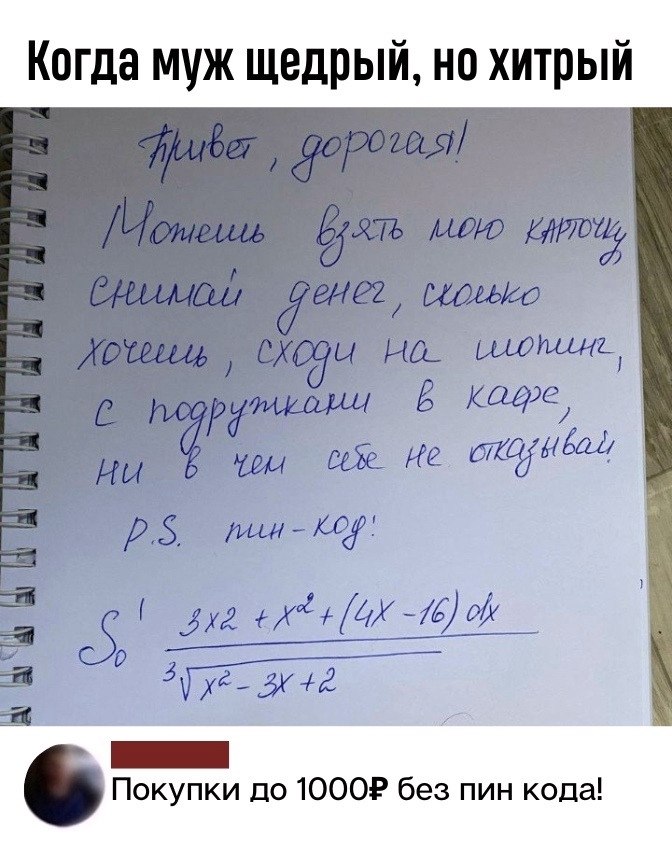 Когда муж щедрый, но хитрый
Привет, дорогая!
Можешь взять мою карточку
снимай денег, сколько
хочешь, сходи на шопинг,
с подружками в кафе,
ни в чем себе не отказывай
P.S. пин-код:
S₀¹ 3x2 + x² + (4x - 16) dx
³√x² - 3x + 2
Покупки до 1000₽ без пин кода!